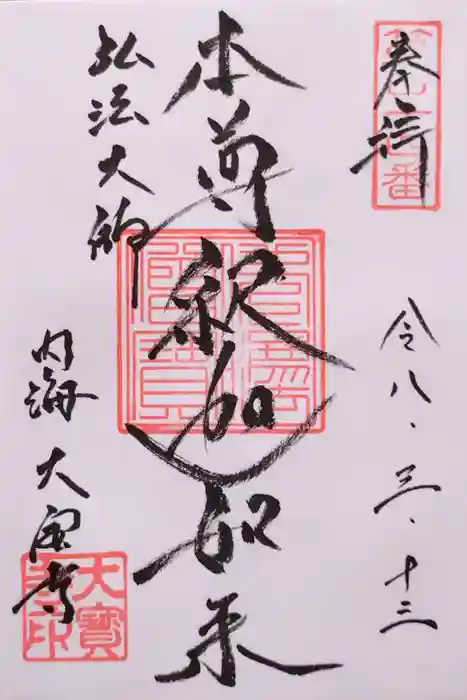 奉拝
令八・三・十三
本尊釈加如来
弘法大師
内海 大宝寺
大寶寺印